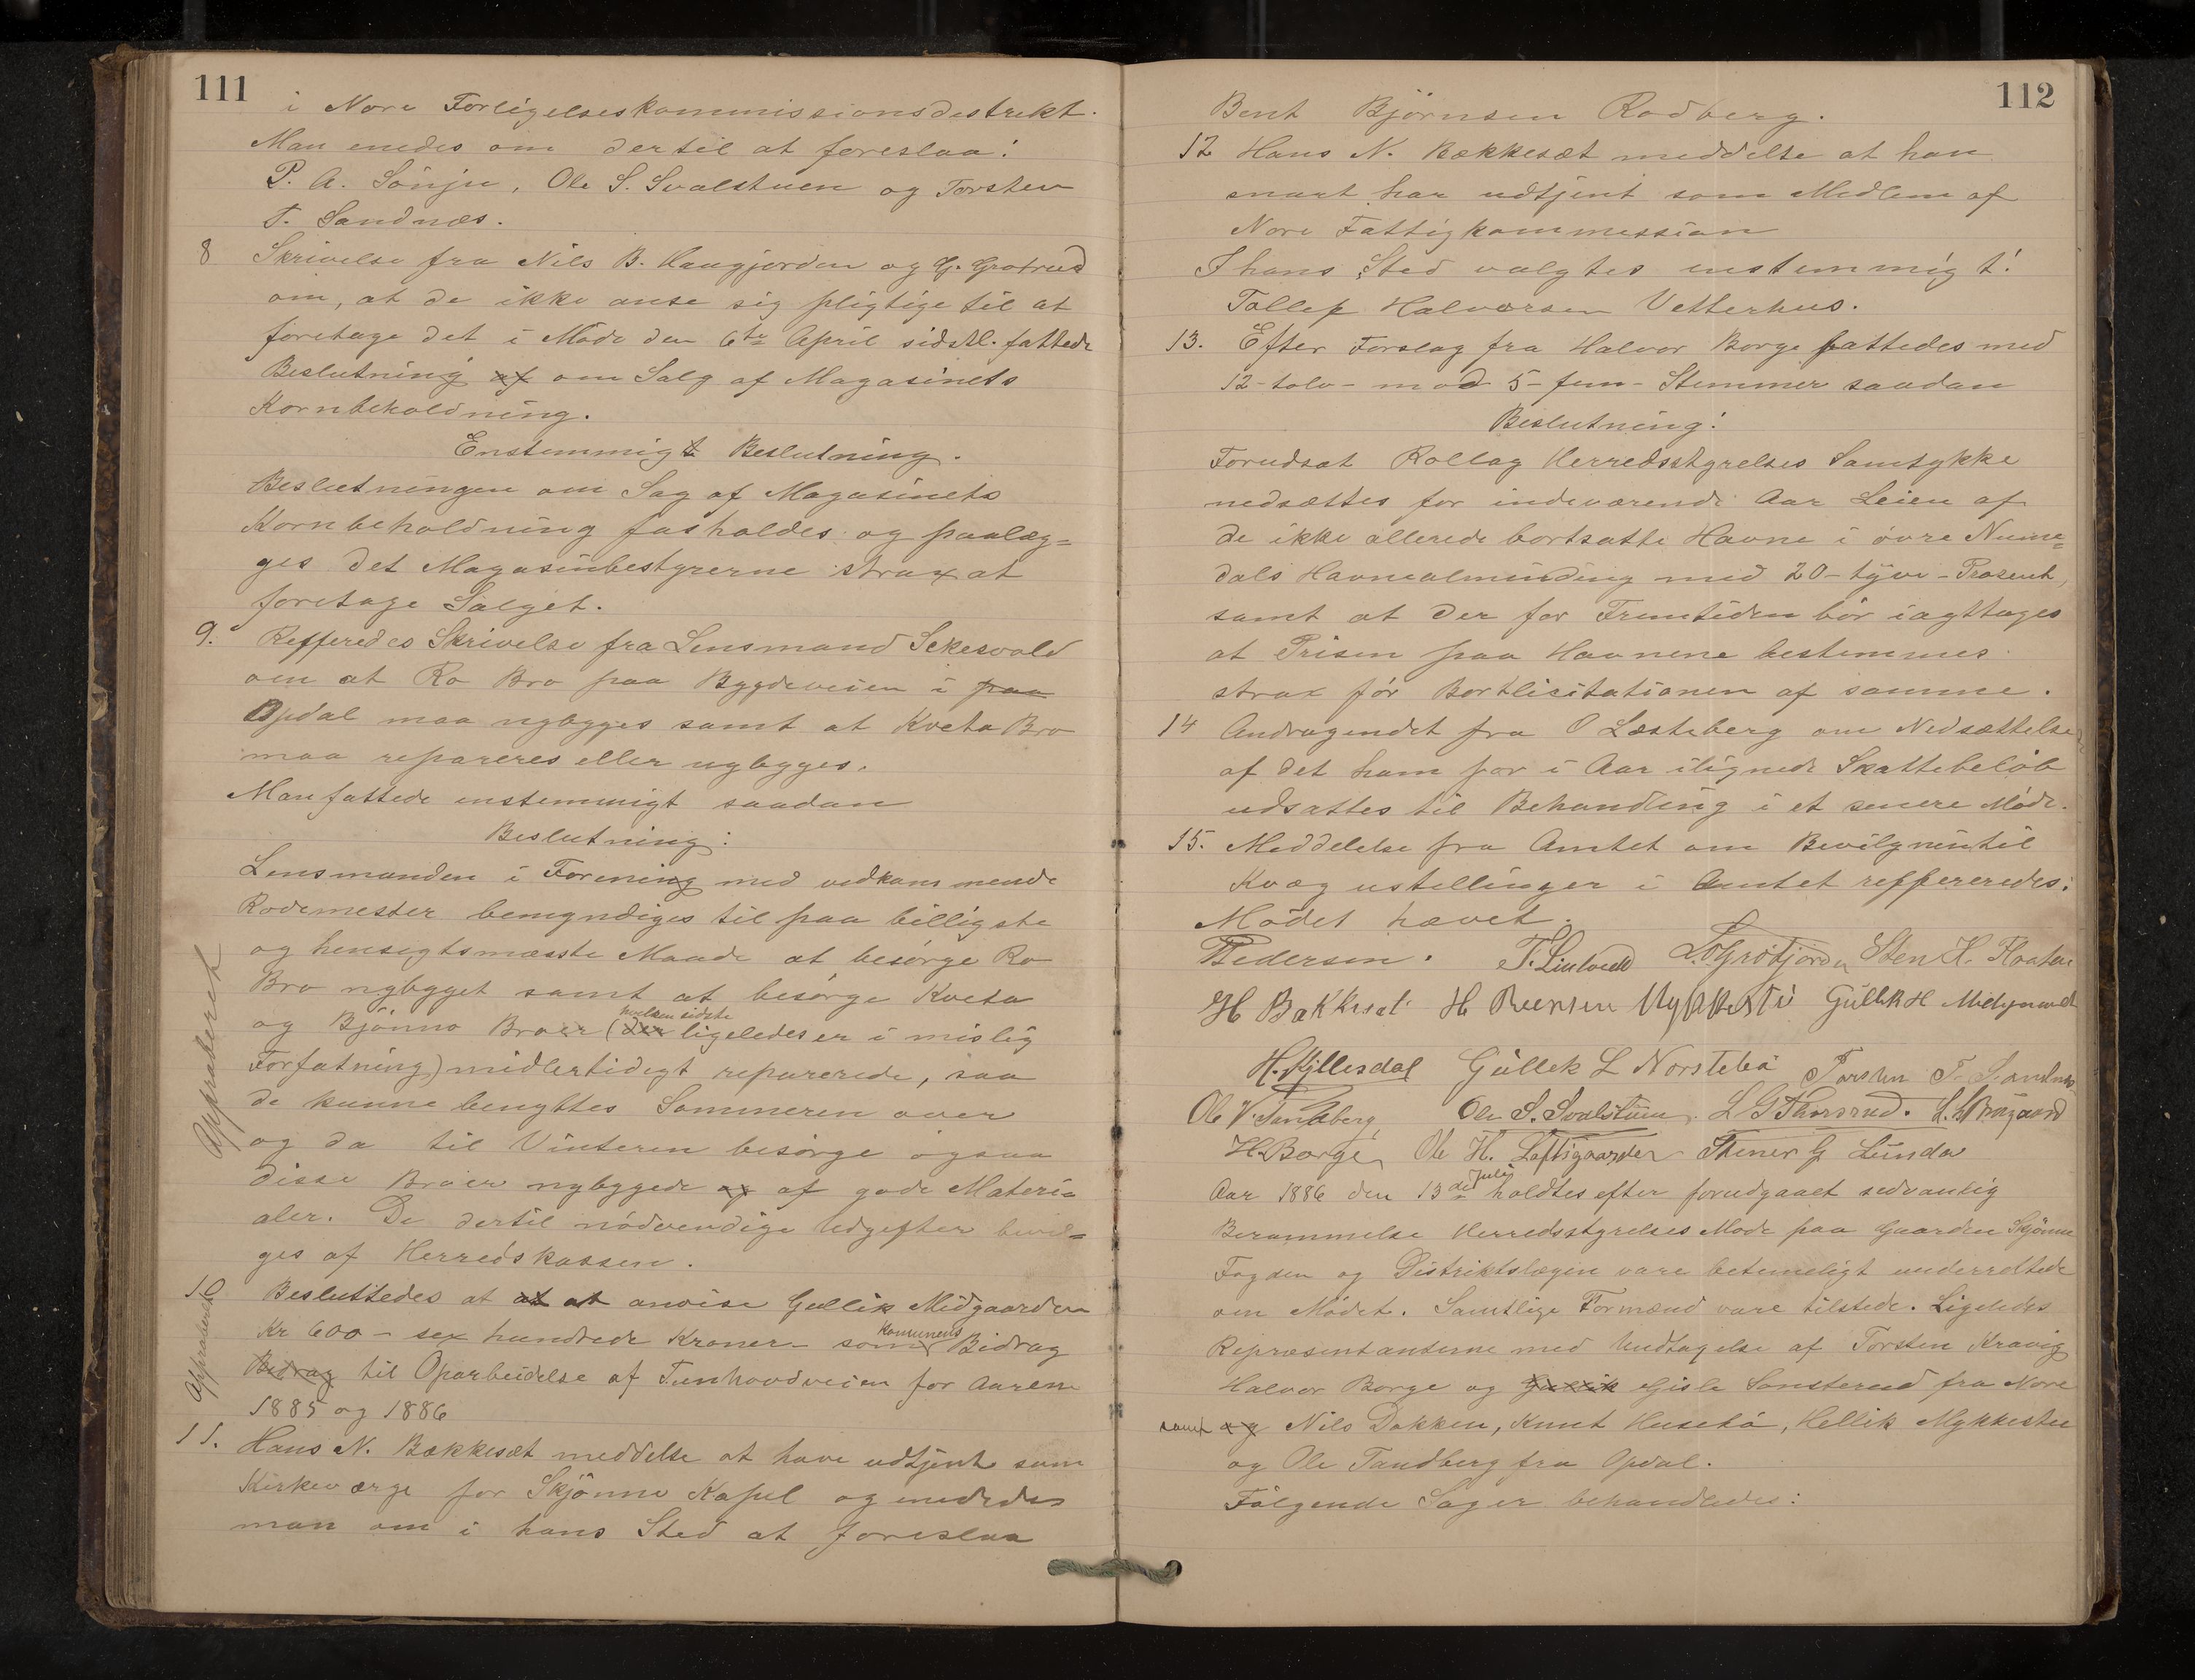 111
i Nore Forligelseskommissionsdestrekt.
Man enedes om dertil at foreslaa:
P. A. Sönju, Ole S. Svalstuen og Torsten
T. Sandnæs.
8 Skrivelse fra Nils B. Haugjorden og G. Grotrud
om, at de ikke anse sig pligtige til at
foretage det i Möde den 6te April sidstl. fattede
Beslutning af om Salg af Magasinets
Kornbeholdning.
Enstemmigt Beslutning.
Beslutningen om Sag af Magasinets
Kornbeholdning fasholdes og paalæg=
ges det Magasinbestyrerne strax at
foretage Salget.
9. Refferedes Skrivelse fra Lensmand Sekesvold
om at Ro Bro paa Bygdeveien i paa
Opdal maa nybygges samt at Kveta Bro
maa repareres eller nybygges.
Man fattede enstemmigt saadan
Beslutning:
Lensmanden i Forening med vedkommende
Rodemester bemyndiges til paa billigste
og hensigtsmæsste Maade at besörge Ro
Bro nybygget samt at besörge Kveta
og Bjönno Broer (der hvilken sidste ligeledes er i mislig
Forfatning) midlertidigt reparerede, saa
de kunne benyttes Sommeren over
og da til Vinteren besörge ogsaa
disse Broer nybyggede og af gode Materi=
aler. De dertil nödvendige Udgifter bevil=
ges af Herredskassen.
Approberet
10 Besluttedes at at at anvise Gullik Midgaarden
Kr 600 - sex hundrede Kroner - som Kommunens Bidrag
Bidrag til Oparbeidelse af Tunhovdveien for Aarene
1885 og 1886
Approberet
11. Hans N. Bækkesæt meddelte at have udtjent som
Kirkeværge for Skjönne Kapel og enedes
man om i hans Sted at foreslaa
112
Bent Björnsen Rodberg.
12 Hans N. Bækkesæt meddelte at han
snart har udtjent som Medlem af
Nore Fattigkommession
I hans Sted valgtes enstemmigt:
Tollef Halvorsen Vetterhus.
13. Efter Forslag fra Halvor Borge fattedes med
12 - tolv - mod 5 - fem - Stemmer saadan
Beslutning:
Forudsat Rollag Herredsstyrelses Samtykke
nedsættes for indeværende Aar Leien af
de ikke allerede bortsatte Havne i övre Nume=
dals Havnealminding med 20 - tyve - Prosent,
samt at der for Fremtiden bör iagttages
at Prisen paa Havnene bestemmes
strax för Bortlisitationen af samme.
14 Andragendet fra O Læsteberg om Nedsættelse
af det ham for i Aar ilignede Skattebelöb
udsattes til Behandling i et senere Möde.
15. Meddelelse fra Amtet om Bevilgnintil
Kvægustellinger i Amtet reffereredes:
Mödet hævet.
Pedersen. T. Lindved Sten H.
H Bækkesæt H Gullik H Midgaard
H. Kjillesdal Gullek L Norstebö Torsten T. Sandnæs
Ole V. Tandberg Ole S. Svalstuen. L G Thorsrud.
H. Borge Ole H. Loftsgaarden Stener G Lunda
Aar 1886 den 13de Juli holdtes efter forudgaaet sedvanlig
Berammelse Herredsstyrelses Möde paa Gaarden Skjönne
Fogden og Distriktslægen vare betemeligt underrettede
om Mödet. Samtlige Formænd vare tilstede. Ligeledes
Repræsentanterne med Undtagelse af Torsten Kravig
Halvor Borge og Gullik Gisle Sonsterud fra Nore
samt og Nils Dokken, Knut Husebö, Hellik Mykkestu
og Ole Tandberg fra Opdal.
Fölgende Sager behandledes: